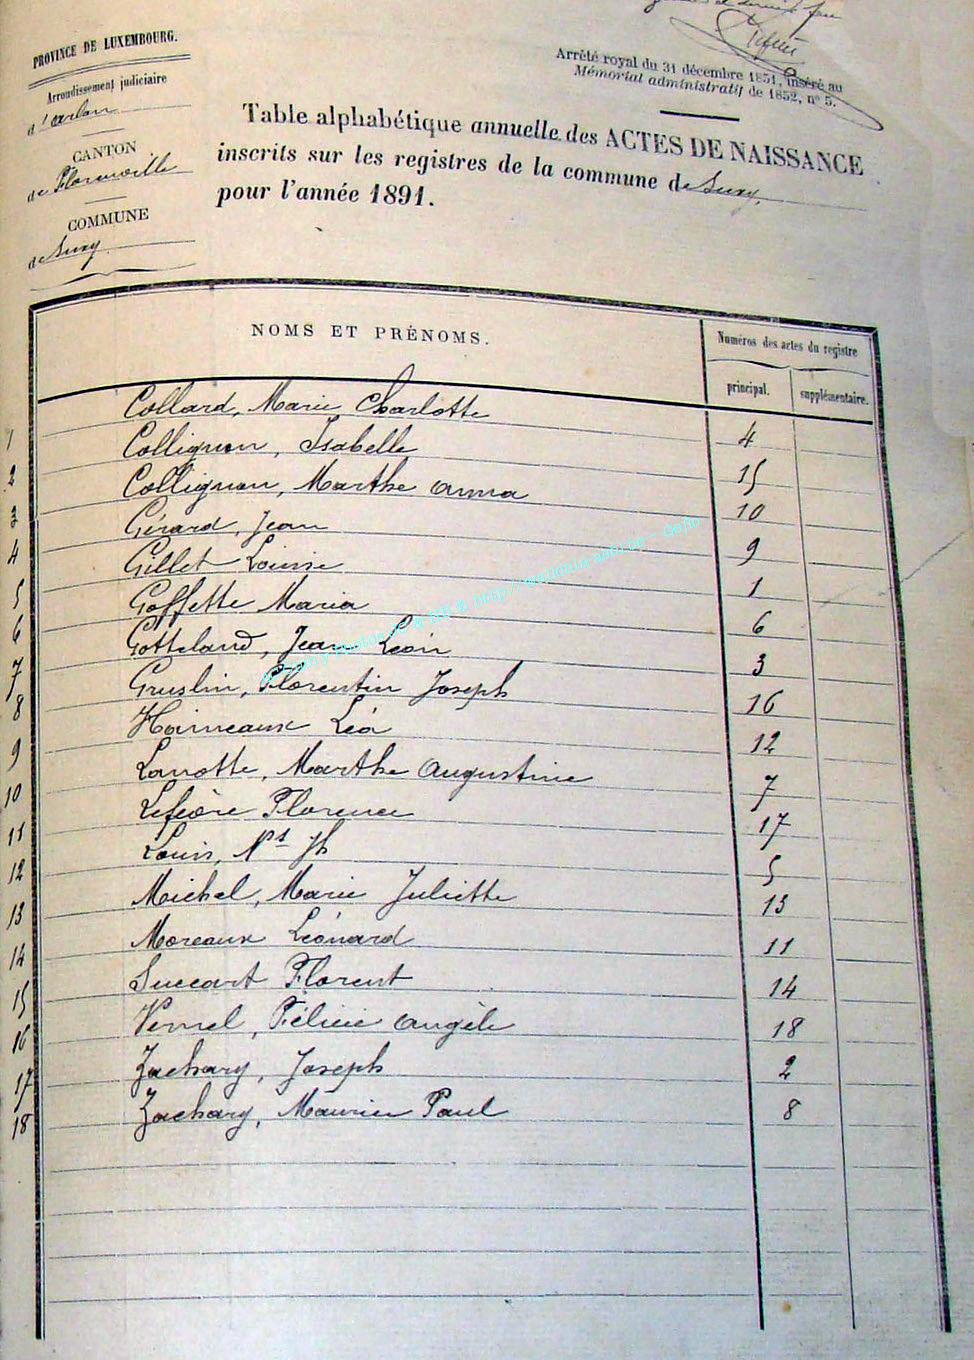 PROVINCE DE LUXEMBOURG.
Arrondissement judiciaire
d'Arlon
CANTON
de Florenville
COMMUNE
de Suxy
Arrêté royal du 31 décembre 1851, inséré au
Mémorial administratif de 1852, nº 5.
Table alphabétique annuelle des ACTES DE NAISSANCE
inscrits sur les registres de la commune de Suxy,
pour l'année 1891.
NOMS ET PRÉNOMS.
Numéros des actes du registre
principal. supplémentaire.
1 Collard, Marie Charlotte 4
2 Collignon, Isabelle 15
3 Collignon, Marthe Anna 10
4 Gérard, Jean 9
5 Gillet Louise 1
6 Goffette Maria 6
7 Gotteland, Jean Léon 3
8 Gruslin, Florentin Joseph 16
9 Hainneaux Léa 12
10 Lanotte, Marthe Augustine 7
11 Lefèvre Florence 17
12 Louis, Nas Jh 5
13 Michel, Marie Juliette 13
14 Moreaux Léonard 11
15 Succart Florent 14
16 Vernel, Félicie Angèle 18
17 Zachary, Joseph 2
18 Zachary, Maurice Paul 8